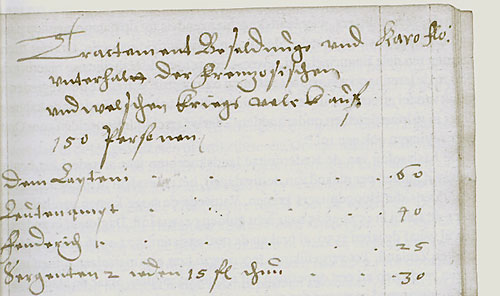 Tractament Besoldung und
unterhalt der frantzosischen
und welschen kriegs volck auf
150 Personen
dem Capteni . . . 60
Leutenampt . . . 40
fenderich 1 . . . 25
Sergenten 2 ieden 15 fl . . 30